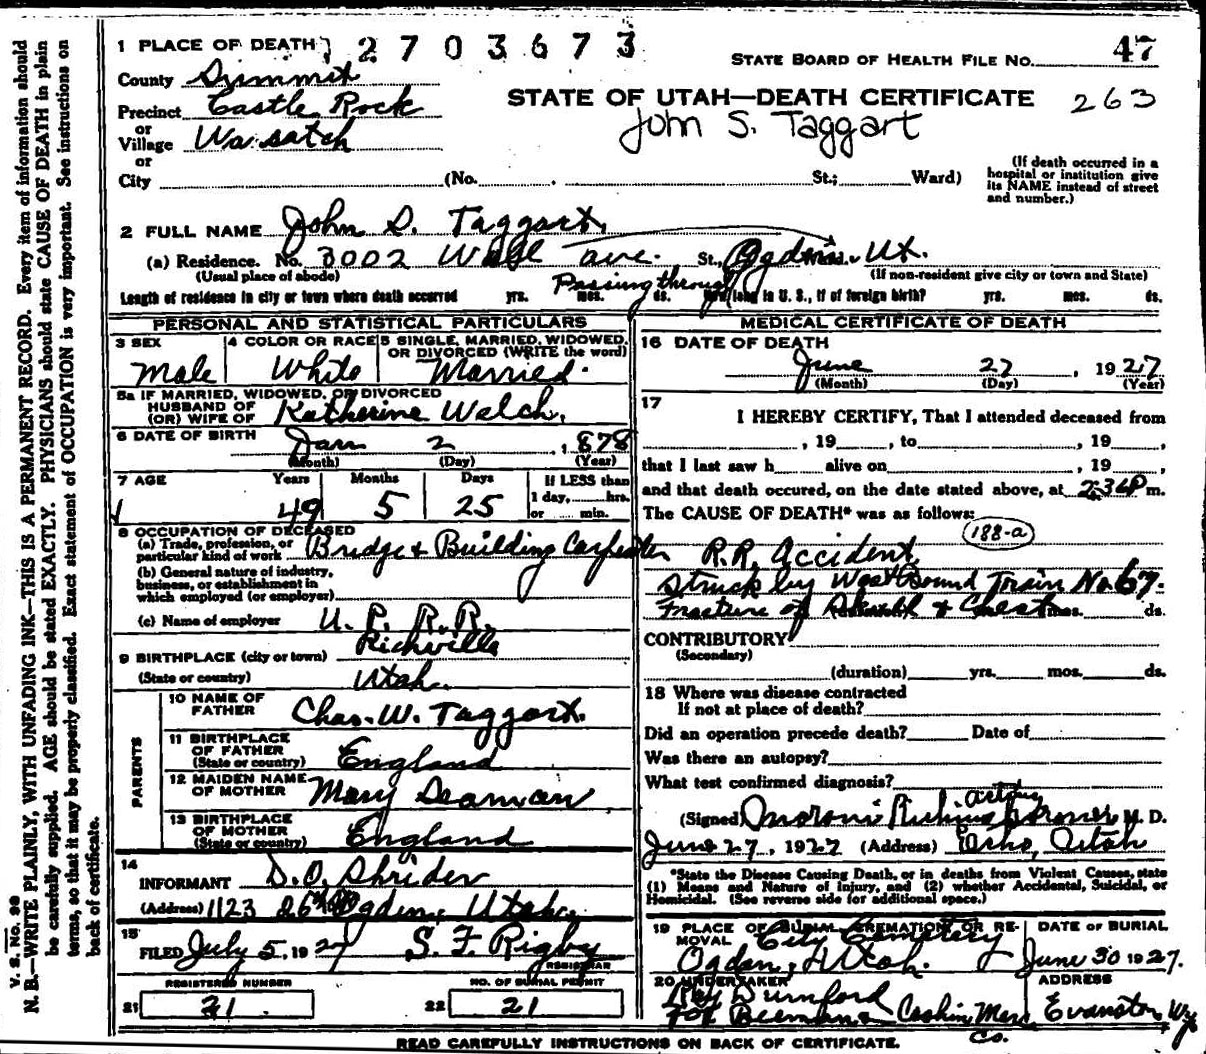 1 PLACE OF DEATH 2703673
STATE BOARD OF HEALTH FILE NO. 47
County Summit
Precinct Castle Rock
or
Village Wasatch
or
City (No. St.; Ward)
STATE OF UTAH—DEATH CERTIFICATE 263
John S. Taggart
(If death occurred in a
hospital or institution give
its NAME instead of street
and number.)
2 FULL NAME John S. Taggart.
(a) Residence. No. 3002 Wall ave. St., Ogden Ut.
(Usual place of abode) (If non-resident give city or town and State)
Passing through
Length of residence in city or town where death occurred yrs. mos. ds. How long in U. S., if of foreign birth? yrs. mos. ds.
PERSONAL AND STATISTICAL PARTICULARS
3 SEX 4 COLOR OR RACE 5 SINGLE, MARRIED, WIDOWED,
OR DIVORCED (WRITE the word)
Male White Married.
5a IF MARRIED, WIDOWED, OR DIVORCED
HUSBAND OF
(OR) WIFE OF Katherine Welch.
6 DATE OF BIRTH Jan 2, 1878
(Month) (Day) (Year)
7 AGE Years Months Days If LESS than
1 day, hrs.
or min.
49 5 25
8 OCCUPATION OF DECEASED
(a) Trade, profession, or
particular kind of work Bridge & Building Carpenter
(b) General nature of industry,
business, or establishment in
which employed (or employer)
(c) Name of employer U. P. R. R.
Richville
9 BIRTHPLACE (city or town)
(State or country) Utah.
PARENTS
10 NAME OF
FATHER Chas. W. Taggart.
11 BIRTHPLACE
OF FATHER
(State or country) England
12 MAIDEN NAME
OF MOTHER Mary Seaman
13 BIRTHPLACE
OF MOTHER
(State or country) England
14
INFORMANT D. O. Shrider
(Address) 1123 26th Ogden, Utah.
15
FILED July 5, 1927 S. F. Rigby
REGISTRAR
REGISTERED NUMBER NO. OF BURIAL PERMIT
21 21 22 21
MEDICAL CERTIFICATE OF DEATH
16 DATE OF DEATH
June 27, 1927
(Month) (Day) (Year)
17
I HEREBY CERTIFY, That I attended deceased from
, 19 , to , 19 ,
that I last saw h alive on , 19 ,
and that death occured, on the date stated above, at 2:36P m.
The CAUSE OF DEATH* was as follows:
188-a
R.R. accident,
Struck by West Bound Train No. 67.
Fracture of & Chest mos. ds.
CONTRIBUTORY
(Secondary)
(duration) yrs. mos. ds.
18 Where was disease contracted
If not at place of death?
Did an operation precede death? Date of
Was there an autopsy?
What test confirmed diagnosis?
acting
(Signed) Moroni Richins Coroner M. D.
June 27, 1927 (Address) Echo, Utah
*State the Disease Causing Death, or in deaths from Violent Causes, state
(1) Means and Nature of Injury, and (2) whether Accidental, Suicidal, or
Homicidal. (See reverse side for additional space.)
19 PLACE OF BURIAL, CREMATION, OR RE-
MOVAL City Cemetery
Ogden, Utah.
DATE OF BURIAL
June 30 1927.
20 UNDERTAKER ADDRESS
Ray Durnford
For Beeman & Cashin Merc Co. Evanston Wy
READ CAREFULLY INSTRUCTIONS ON BACK OF CERTIFICATE.
V. S. No. 98
N. B.—WRITE PLAINLY, WITH UNFADING INK—THIS IS A PERMANENT RECORD. Every item of information should
be carefully supplied. AGE should be stated EXACTLY. PHYSICIANS should state CAUSE OF DEATH in plain
terms, so that it may be properly classified. Exact statement of OCCUPATION is very important. See instructions on
back of certificate.